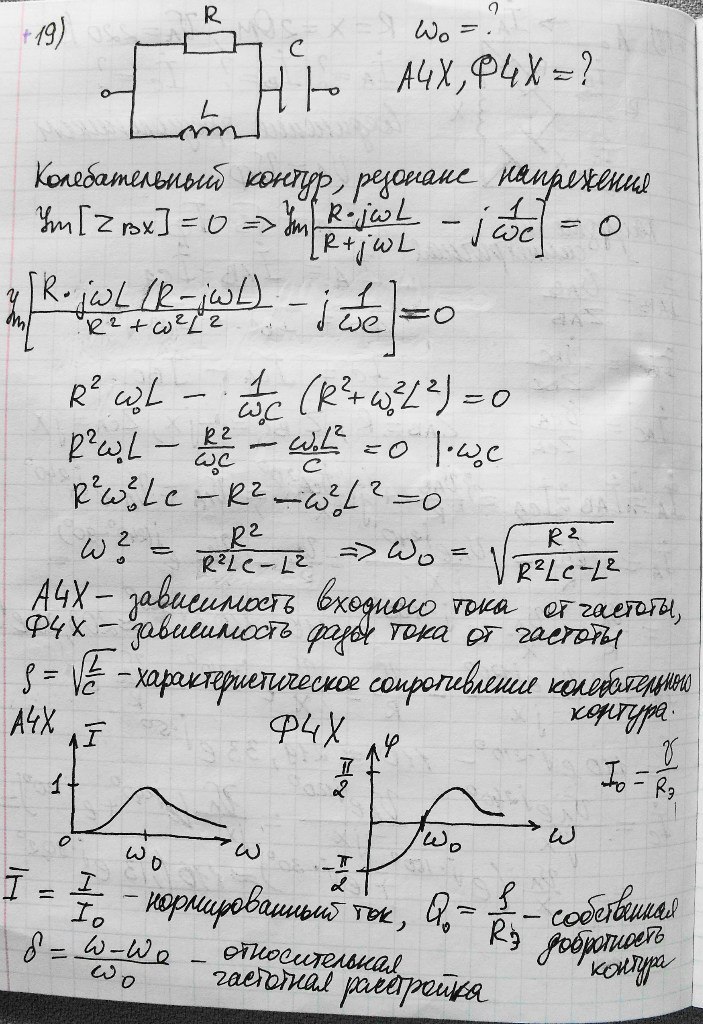 +19)
R
C
L
ω₀ = ?
АЧХ, ФЧХ = ?
Колебательный контур, резонанс напряжения
Jm [Z вх] = 0 => Jm [R·jωL / (R+jωL) − j 1/(ωC)] = 0
Jm [R·jωL (R−jωL) / (R² + ω²L²) − j 1/(ωC)] = 0
R² ω₀L − 1/(ω₀C) (R²+ω₀²L²) = 0
R²ω₀L − R²/(ω₀C) − ω₀L²/C = 0 |·ω₀C
R²ω₀²LC − R² − ω₀²L² = 0
ω₀² = R²/(R²LC−L²) => ω₀ = √(R²/(R²LC−L²))
АЧХ – зависимость входного тока от частоты,
ФЧХ – зависимость фазы тока от частоты
ρ = √(L/C) – характеристическое сопротивление колебательного
контура.
АЧХ
Ī
1
0
ω₀
ω
ФЧХ
φ
π/2
−π/2
ω₀
ω
I₀ = γ/Rэ
Ī = I/I₀ – нормированный ток, Q₀ = ρ/Rэ – собственная
добротность
контура
δ = (ω−ω₀)/ω₀ – относительная
частотная расстройка